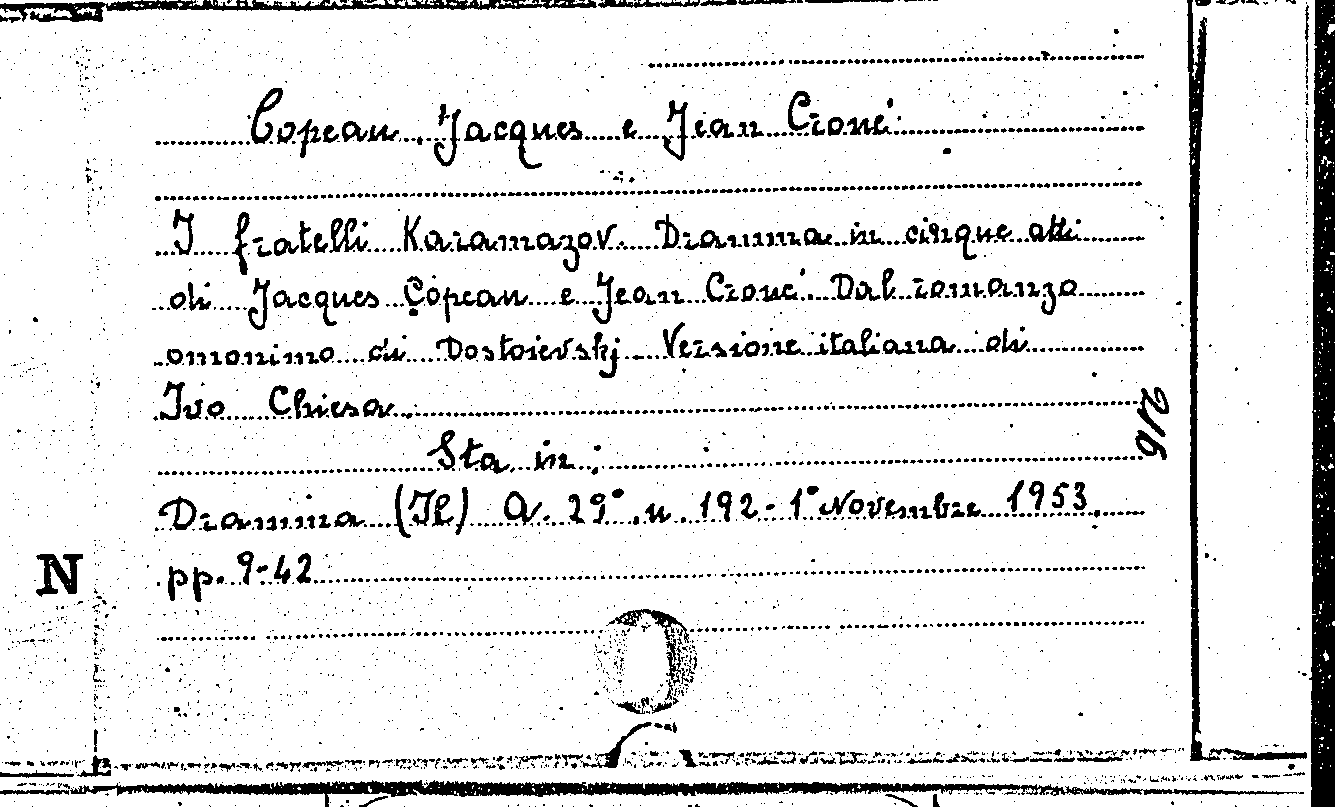 Copeau Jacques e Jean Croué
I fratelli Karamazov. Dramma in cinque atti
di Jacques Copeau e Jean Croué. Dal romanzo
omonimo di Dostoievskj. Versione italiana di
Ivo Chiesa.
216
Sta in:
Dramma (Il) A. 29° n. 192 - 1° Novembre 1953.
N
pp. 9-42